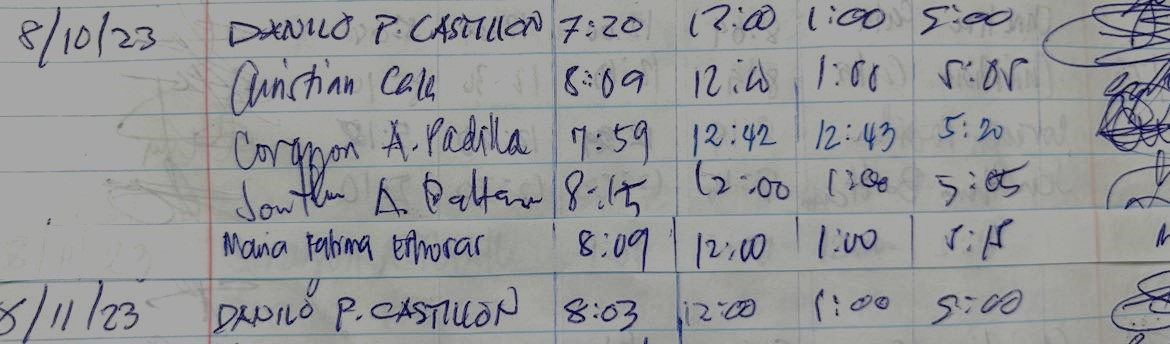 8/10/23 DANILO P. CASTILLON 7:20 12:00 1:00 5:00
Christian 8:09 12:00 1:00 5:05
Corazon A. Padilla 7:59 12:42 12:43 5:20
A. 8:15 12:00 1:00 5:05
Maria Fatima 8:09 12:00 1:00 5:15
8/11/23 DANILO P. CASTILLON 8:03 12:00 1:00 5:00